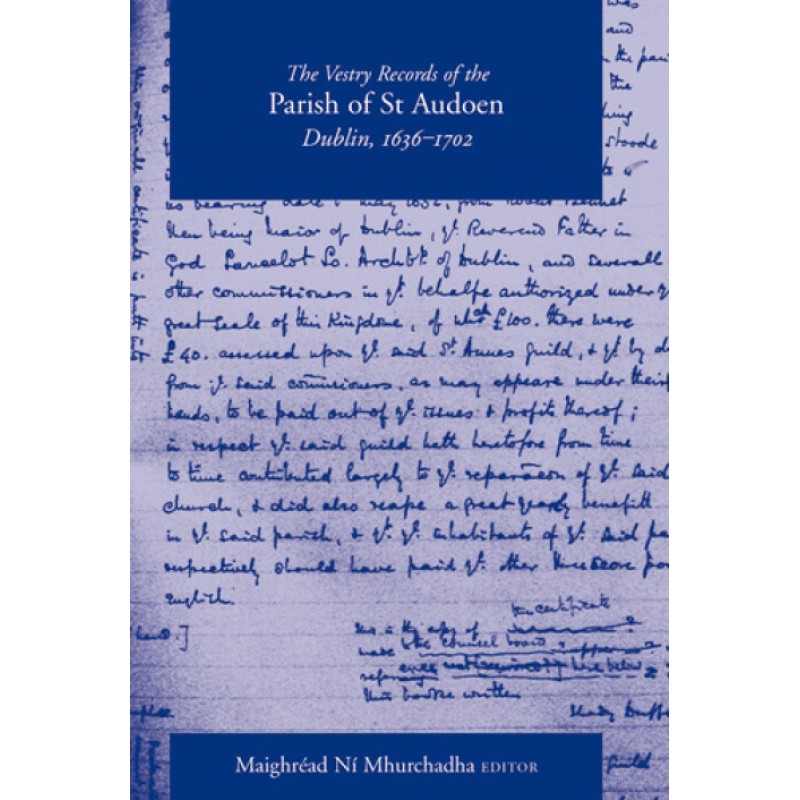 The Vestry Records of the
Parish of St Audoen
Dublin, 1636–1702
was
and
the
stoode
as bearing date 1 may 1632, from Robert Bennet
then being Maior of Dublin, yᵉ Reverend Father in
God Lancelot Lo. Archbᵖ. of Dublin, and severall
other commissioners in yᵗ behalfe authorized under yᵉ
great seale of this Kingdome, of wᶜʰ £100. there were
£40. assessed upon yᵉ said Sᵗ Annes guild, & yᵗ by
from yᵉ said comissioners, as may appeare under their
hands, to be paid out of yᵉ issues & profits thereof;
in respect yᵉ said guild hath heretofore from time
to time contributed largely to yᵉ reparacon of yᵉ said
church, & did also reape a great yearly benefitt
in yᵉ said parish, & yᵗ yᵉ inhabitants of yᵉ said
respectively should have paid yᵉ other three score
English.
the certificate
this is the copy of
made to the Counsel board &
here below
this booke written
guild
Maighréad Ní Mhurchadha EDITOR